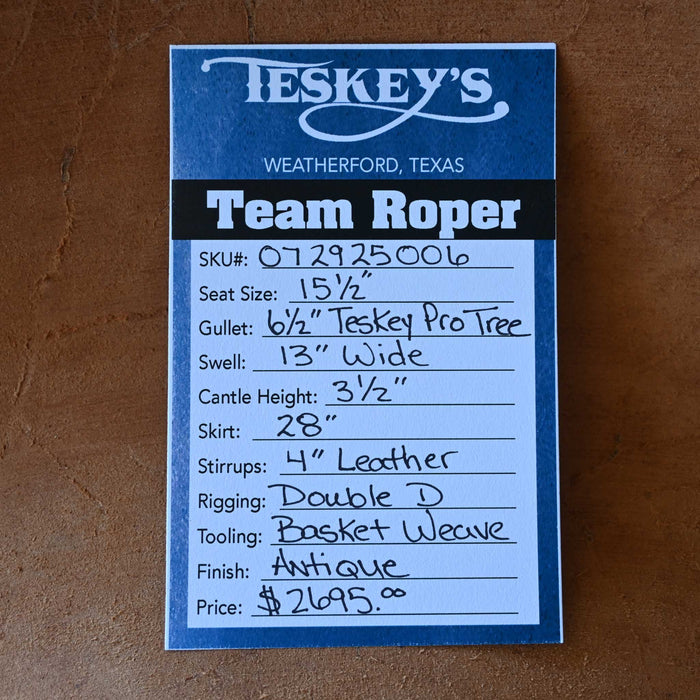 TESKEY'S
WEATHERFORD, TEXAS
Team Roper
SKU#: 072925006
Seat Size: 15½"
Gullet: 6½" Teskey Pro Tree
Swell: 13" Wide
Cantle Height: 3½"
Skirt: 28"
Stirrups: 4" Leather
Rigging: Double D
Tooling: Basket Weave
Finish: Antique
Price: $2695.00